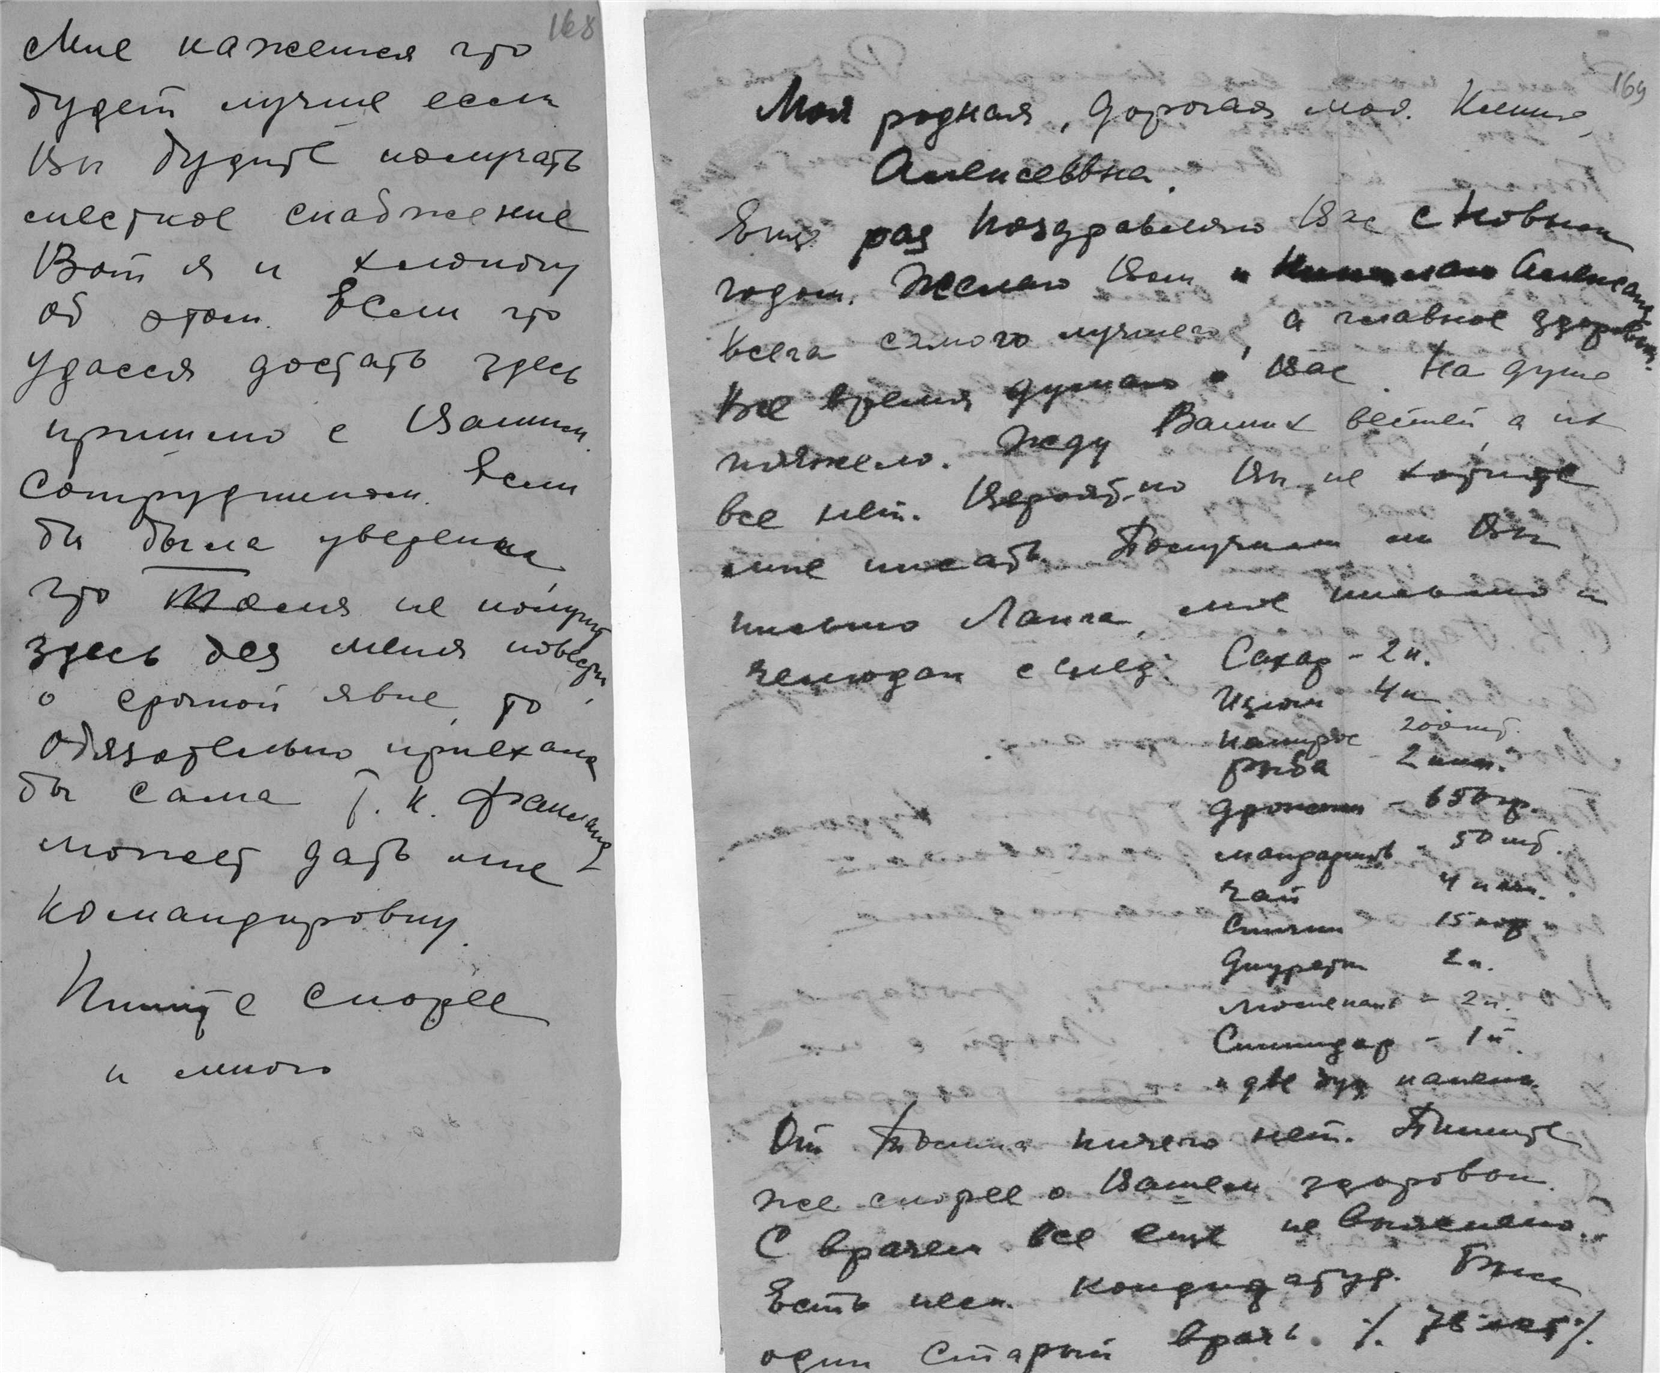 168
Мне кажется что
будет лучше если
Вы будите получать
местное снабжение
Вот я и хлопочу
об этом. Если что
удасся достать здесь
пришлю с Вашим
сотрудником. Если
бы была уверена
что не получу
здесь без меня
о срочной явке, то
обязательно приехала
бы сама т. к.
может дать мне
командировку.
Пишите скорее
и много
169
Моя родная, дорогая моя
Алексеевна.
Еще раз поздравляю Вас с Новым
годом. Желаю Вам и
всего самого лучшего, а главное здоровья.
Все время думаю о Вас. На душе
тяжело. Жду Ваших вестей, а их
все нет. Вероятно Вы не хотите
мне писать. Получили ли Вы
письмо Ланга, мое письмо и
чемодан с след:
Сахар - 2 к.
Изюм 4 к
папирос 200 шт.
рыба - 2 кил.
дрожжи - 650 гр.
мандаринов - 50 шт.
чай 4 пач.
Спички 15 кор.
Диуретин 2 п.
- 2 п.
Скипидар - 1 п.
и две буд
От ничего нет. Пишите
же скорее о Вашем здоровьи.
С врачем все еще не выяснено.
Есть неск. кондидатур. Был
один старый врачь. /. 78 лет /.